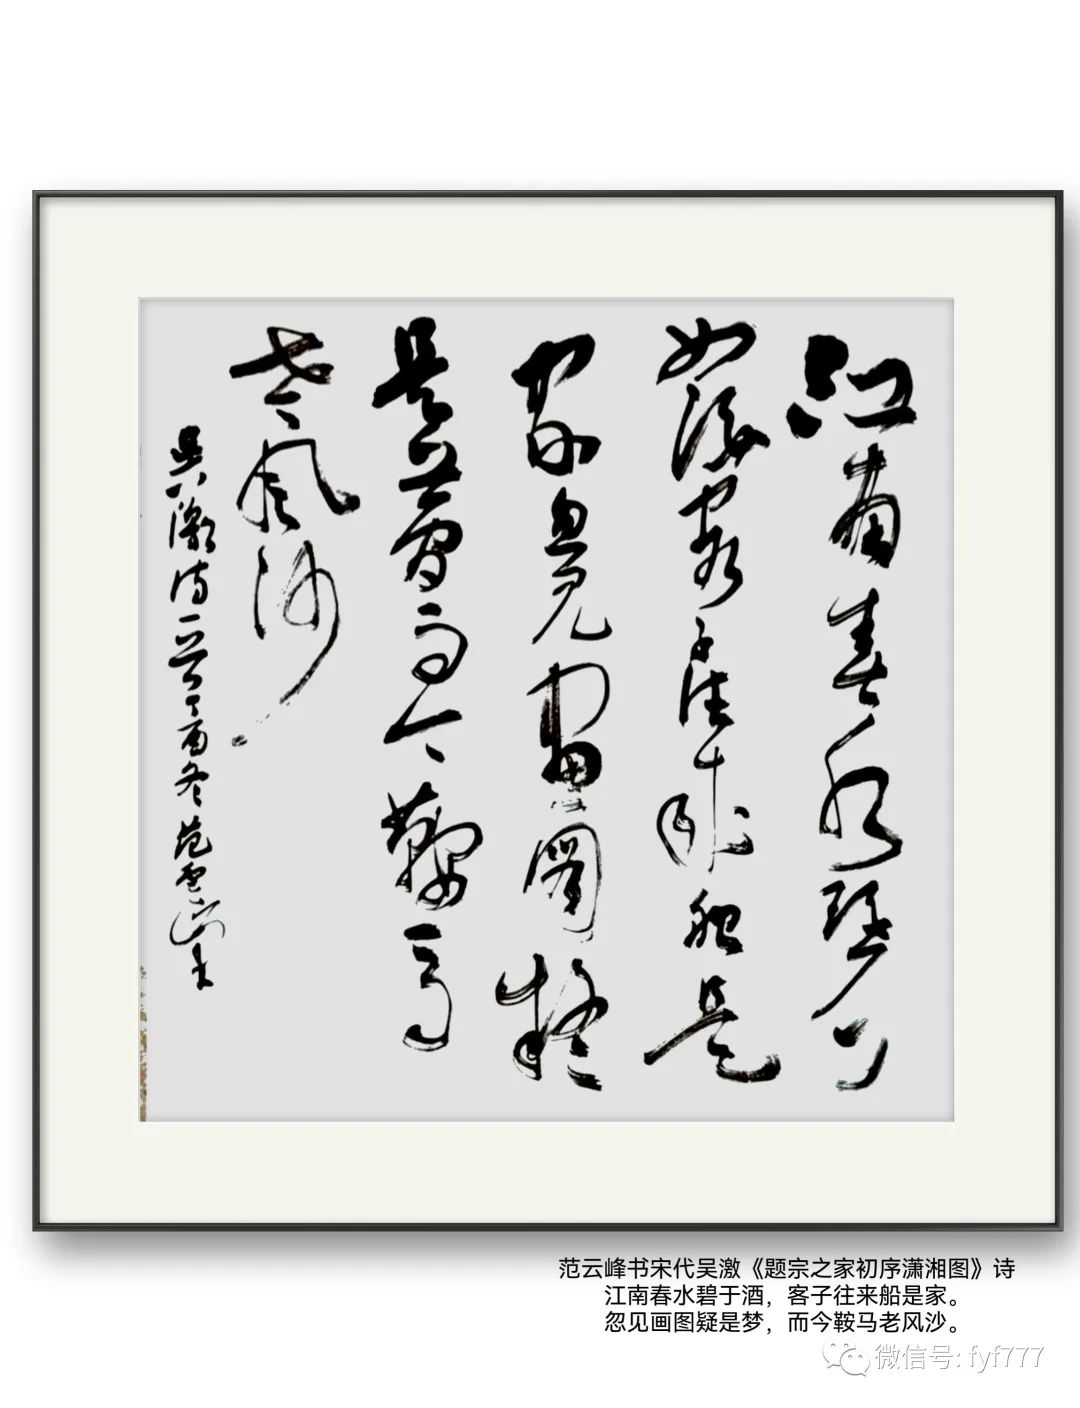 江南春水碧
客子往来船是
家忽见畫圖疑
是夢而今鞍马
老风沙
吴激诗一首丁酉冬范雲峰书
范云峰书宋代吴激《题宗之家初序潇湘图》诗
江南春水碧于酒，客子往来船是家。
忽见画图疑是梦，而今鞍马老风沙。
微信号: fyf777